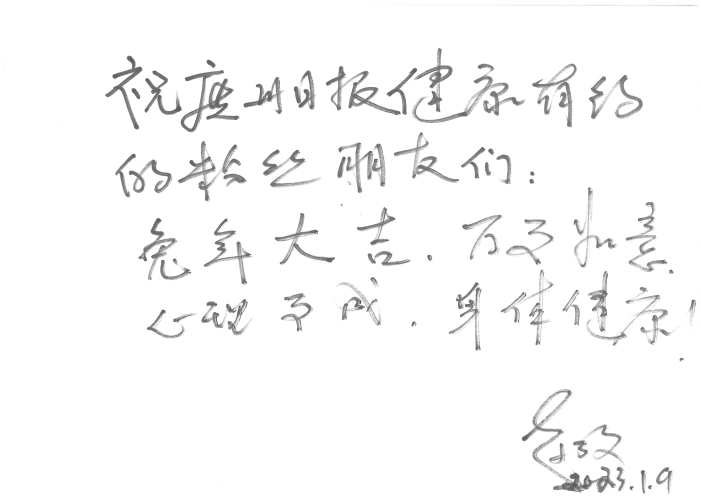 祝广州日报健康有约
的粉丝朋友们:
兔年大吉.万事如意
心理事成.身体健康!
2023.1.9